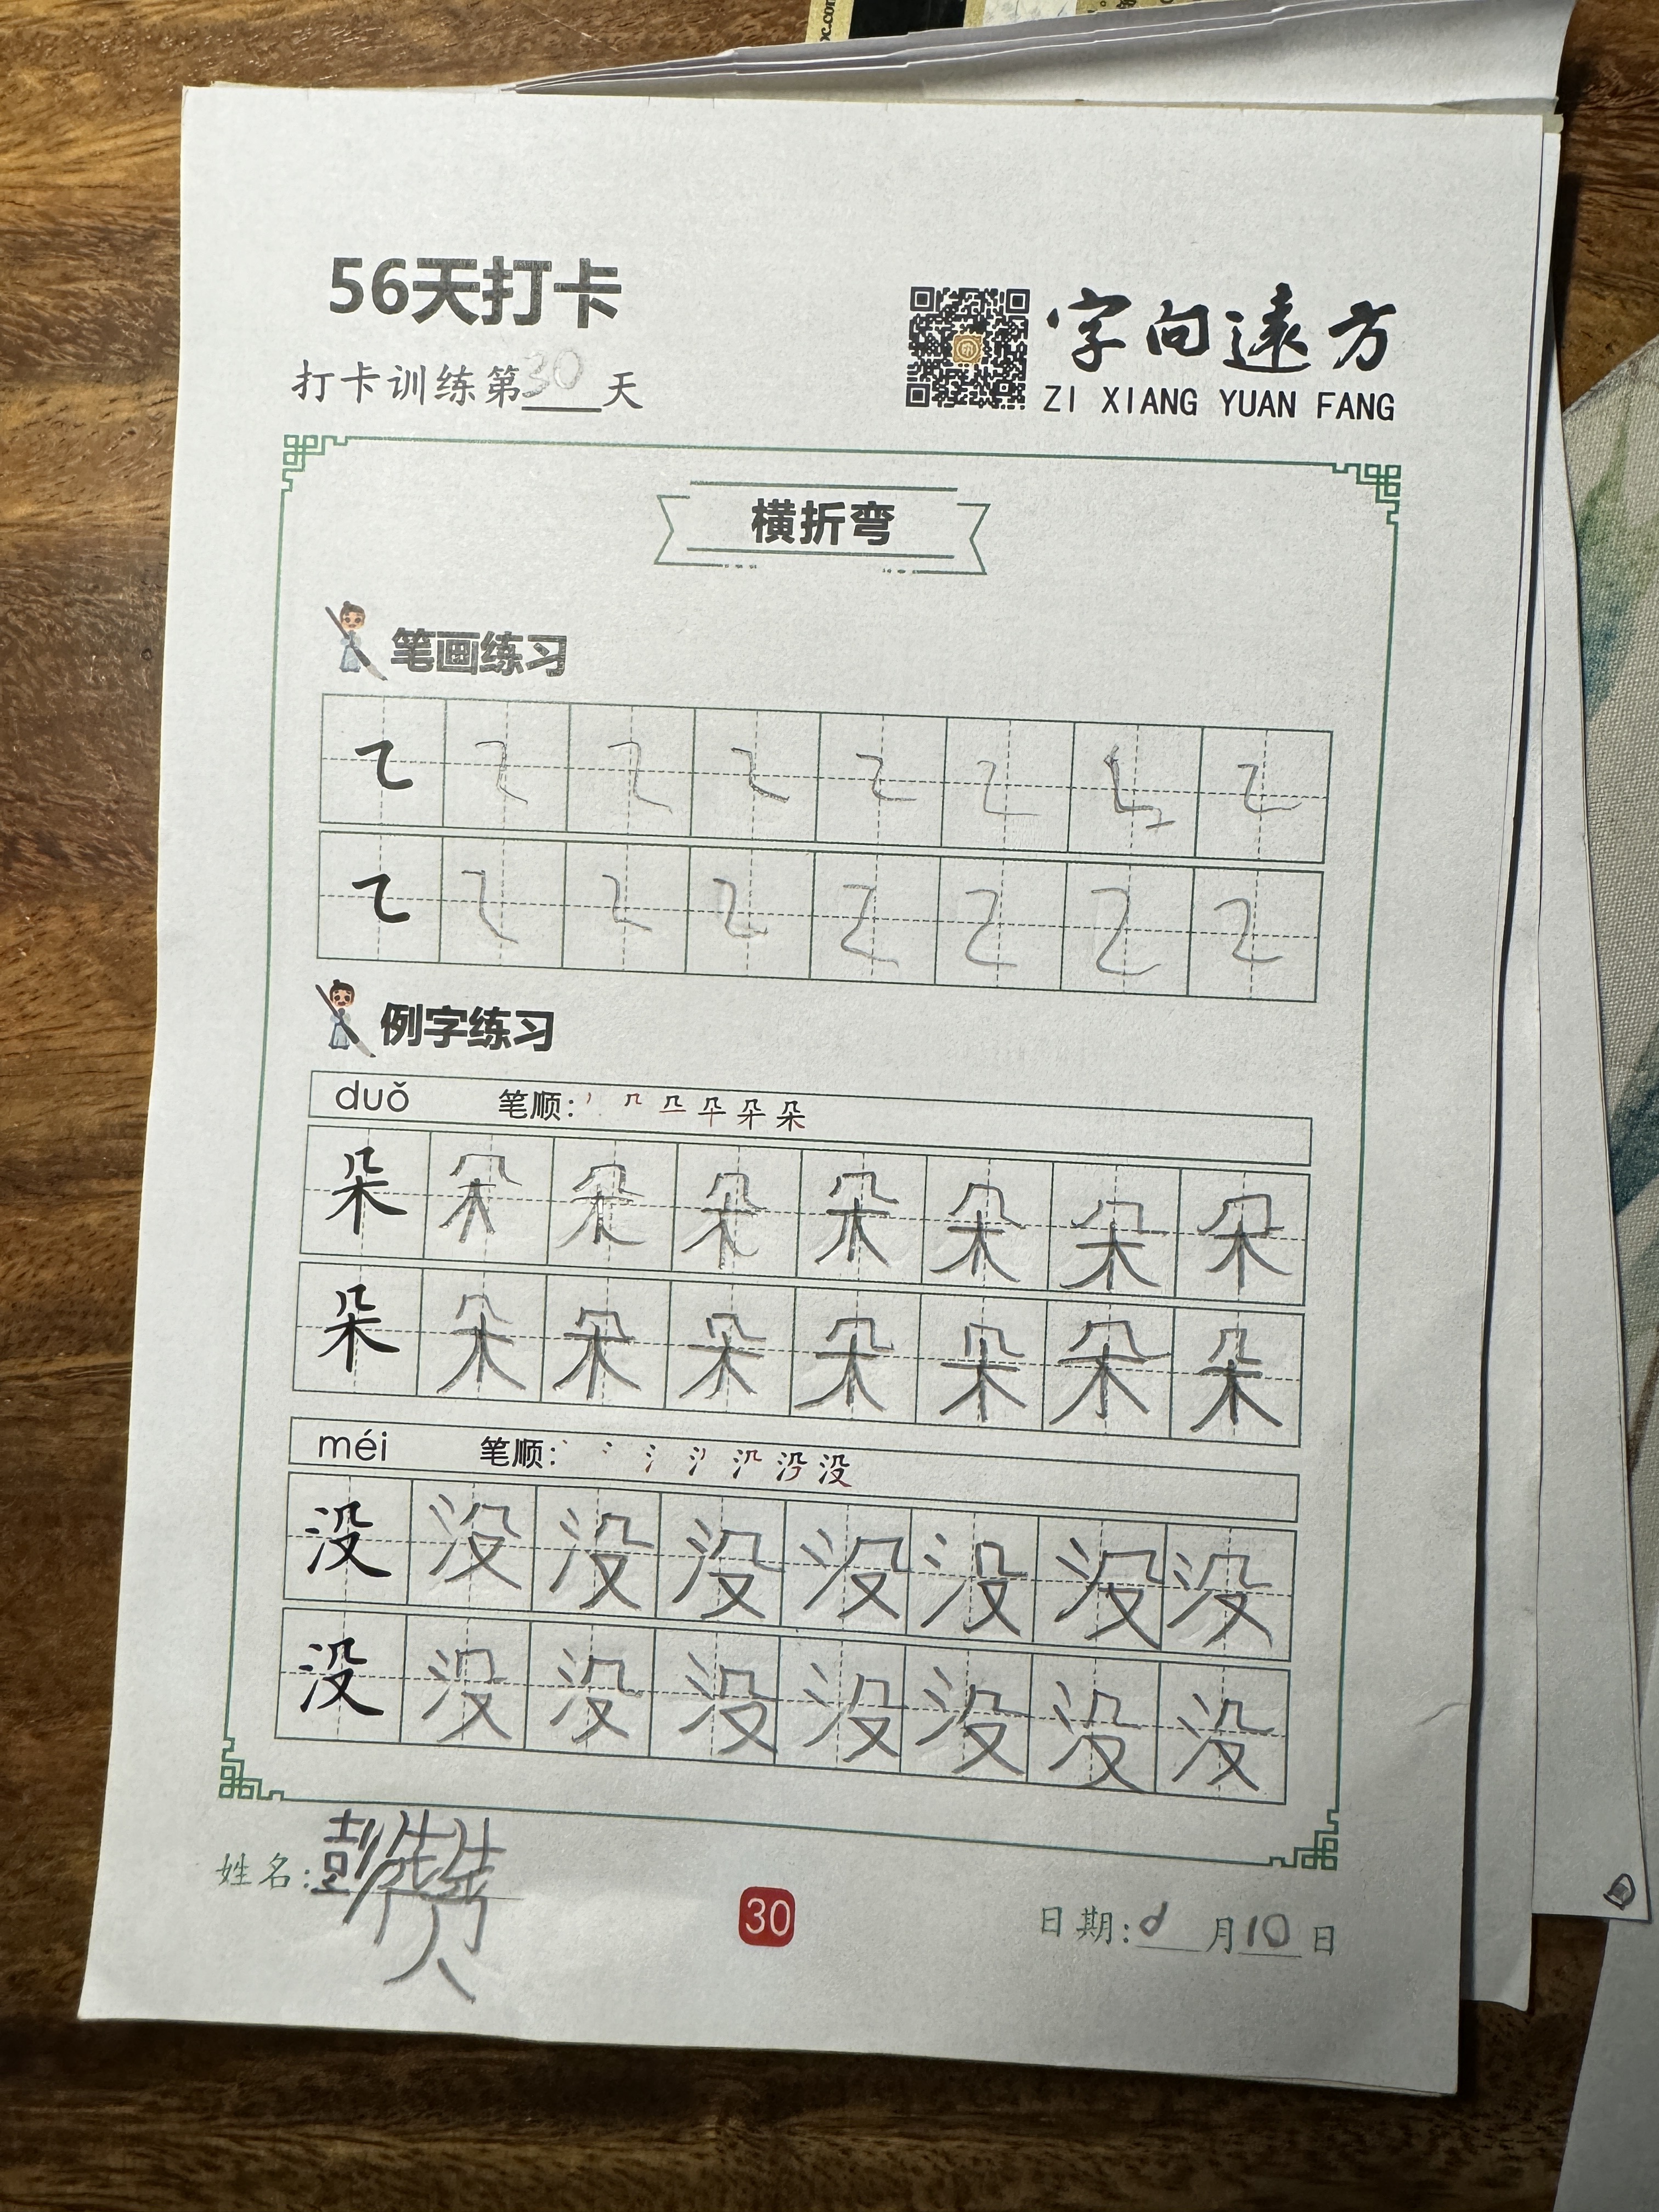 56天打卡
打卡训练第30天
字向遠方
ZI XIANG YUAN FANG
横折弯
笔画练习
例字练习
duǒ 笔顺:
朵 朵 朵 朵 朵 朵 朵 朵
朵 朵 朵 朵 朵 朵 朵 朵
méi 笔顺:
没 没 没 没 没 没 没 没
没 没 没 没 没 没 没 没
姓名:彭赞
30
日期: 月10日